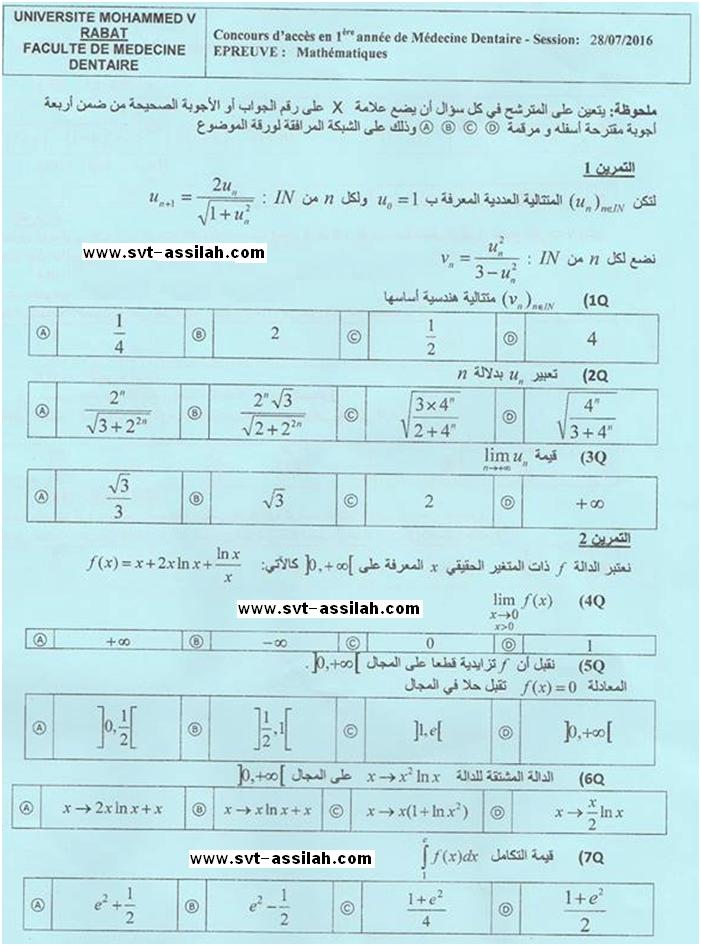 UNIVERSITE MOHAMMED V
RABAT
FACULTE DE MEDECINE
DENTAIRE
Concours d'accès en 1ère année de Médecine Dentaire - Session: 28/07/2016
EPREUVE : Mathématiques
ملحوظة: يتعين على المترشح في كل سؤال أن يضع علامة X على رقم الجواب أو الأجوبة الصحيحة من ضمن أربعة
أجوبة مقترحة أسفله و مرقمة Ⓐ Ⓑ Ⓒ Ⓓ وذلك على الشبكة المرافقة لورقة الموضوع
التمرين 1
لتكن (u_n)_{n∈IN} المتتالية العددية المعرفة ب u_0 = 1 ولكل n من IN : u_{n+1} = 2u_n / √(1+u_n^2)
www.svt-assilah.com
نضع لكل n من IN : v_n = u_n^2 / (3 - u_n^2)
1Q) (v_n)_{n∈IN} متتالية هندسية أساسها
Ⓐ 1/4 Ⓑ 2 Ⓒ 1/2 Ⓓ 4
2Q) تعبير u_n بدلالة n
Ⓐ 2^n / √(3+2^{2n}) Ⓑ 2^n √3 / √(2+2^{2n}) Ⓒ √(3×4^n / (2+4^n)) Ⓓ √(4^n / (3+4^n))
3Q) قيمة lim u_n n→+∞
Ⓐ √3/3 Ⓑ √3 Ⓒ 2 Ⓓ +∞
التمرين 2
نعتبر الدالة f ذات المتغير الحقيقي x المعرفة على ]0,+∞[ كالآتي: f(x) = x + 2x ln x + ln x / x
www.svt-assilah.com
4Q) lim f(x) x→0 x>0
Ⓐ +∞ Ⓑ -∞ Ⓒ 0 Ⓓ 1
5Q) نقبل أن f تزايدية قطعا على المجال ]0,+∞[ .
المعادلة f(x) = 0 تقبل حلا في المجال
Ⓐ ]0,1/2[ Ⓑ ]1/2,1[ Ⓒ ]1,e[ Ⓓ ]0,+∞[
6Q) الدالة المشتقة للدالة x → x^2 ln x على المجال ]0,+∞[
Ⓐ x → 2x ln x + x Ⓑ x → x ln x + x Ⓒ x → x(1 + ln x^2) Ⓓ x → x/2 ln x
www.svt-assilah.com
7Q) قيمة التكامل ∫_1^e f(x)dx
Ⓐ e^2 + 1/2 Ⓑ e^2 - 1/2 Ⓒ (1+e^2)/4 Ⓓ (1+e^2)/2